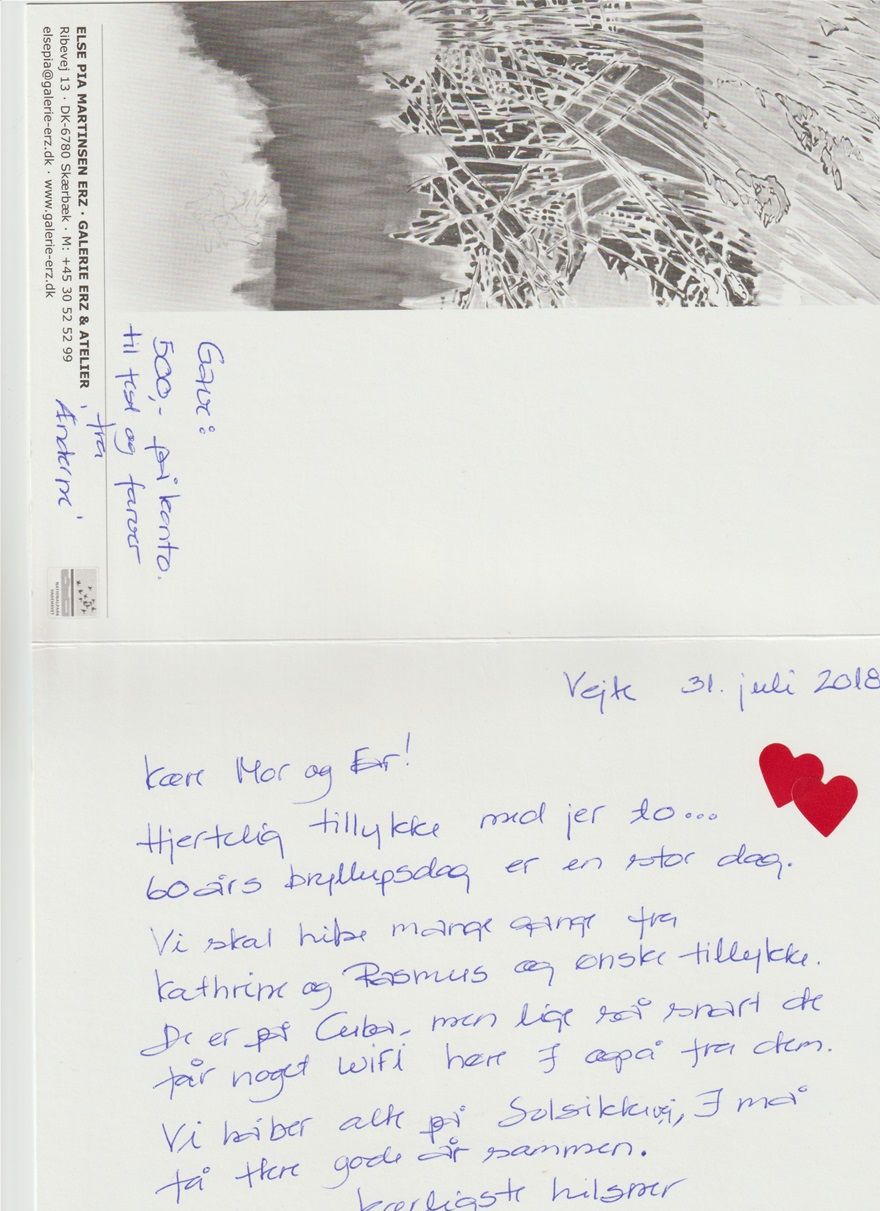 ELSE PIA MARTINSEN ERZ · GALERIE ERZ & ATELIER
Ribevej 13 · DK-6780 Skærbæk · M: +45 30 52 52 99
elsepia@galerie-erz.dk · www.galerie-erz.dk
Gave:
500,- på konto.
til test og farver
' fra
Ænderne '
Vejle 31. juli 2018
Kære Mor og Far!
Hjertelig tillykke med jer to...
60 års bryllupsdag er en stor dag.
Vi skal hilse mange gange fra
Kathrine og Rasmus og ønske tillykke.
De er på Cuba, men lige så snart de
får noget WIFI høre I også fra dem.
Vi håber alle på Solsikkevej, I må
få flere gode år sammen.
Kærligste hilsner